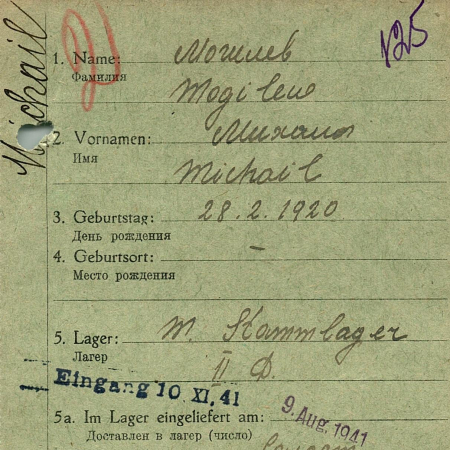 Michail
125
1. Name: Могилев
Фамилия
Mogilew
2. Vornamen: Михаил
Имя
Michail
3. Geburtstag: 28.2.1920
День рождения
4. Geburtsort: –
Место рождения
5. Lager: M. Stammlager
Лагер
II D.
Eingang 10. XI. 41
5a. Im Lager eingeliefert am: 9. Aug. 1941
Доставлен в лагер (число)